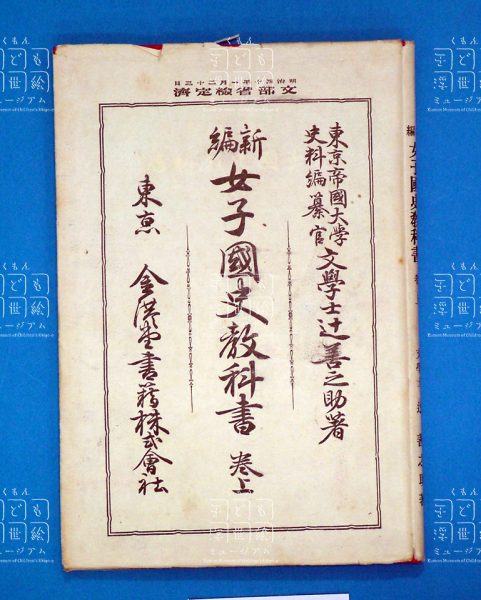 文部省檢定濟
東京帝國大學
史料編纂官 文學士 辻善之助著
新編 女子國史教科書 巻上
東京 金港堂書籍株式會社
くもん
子ども
浮世絵
ミュージアム
Kumon Museum of Children's Ukiyo-e